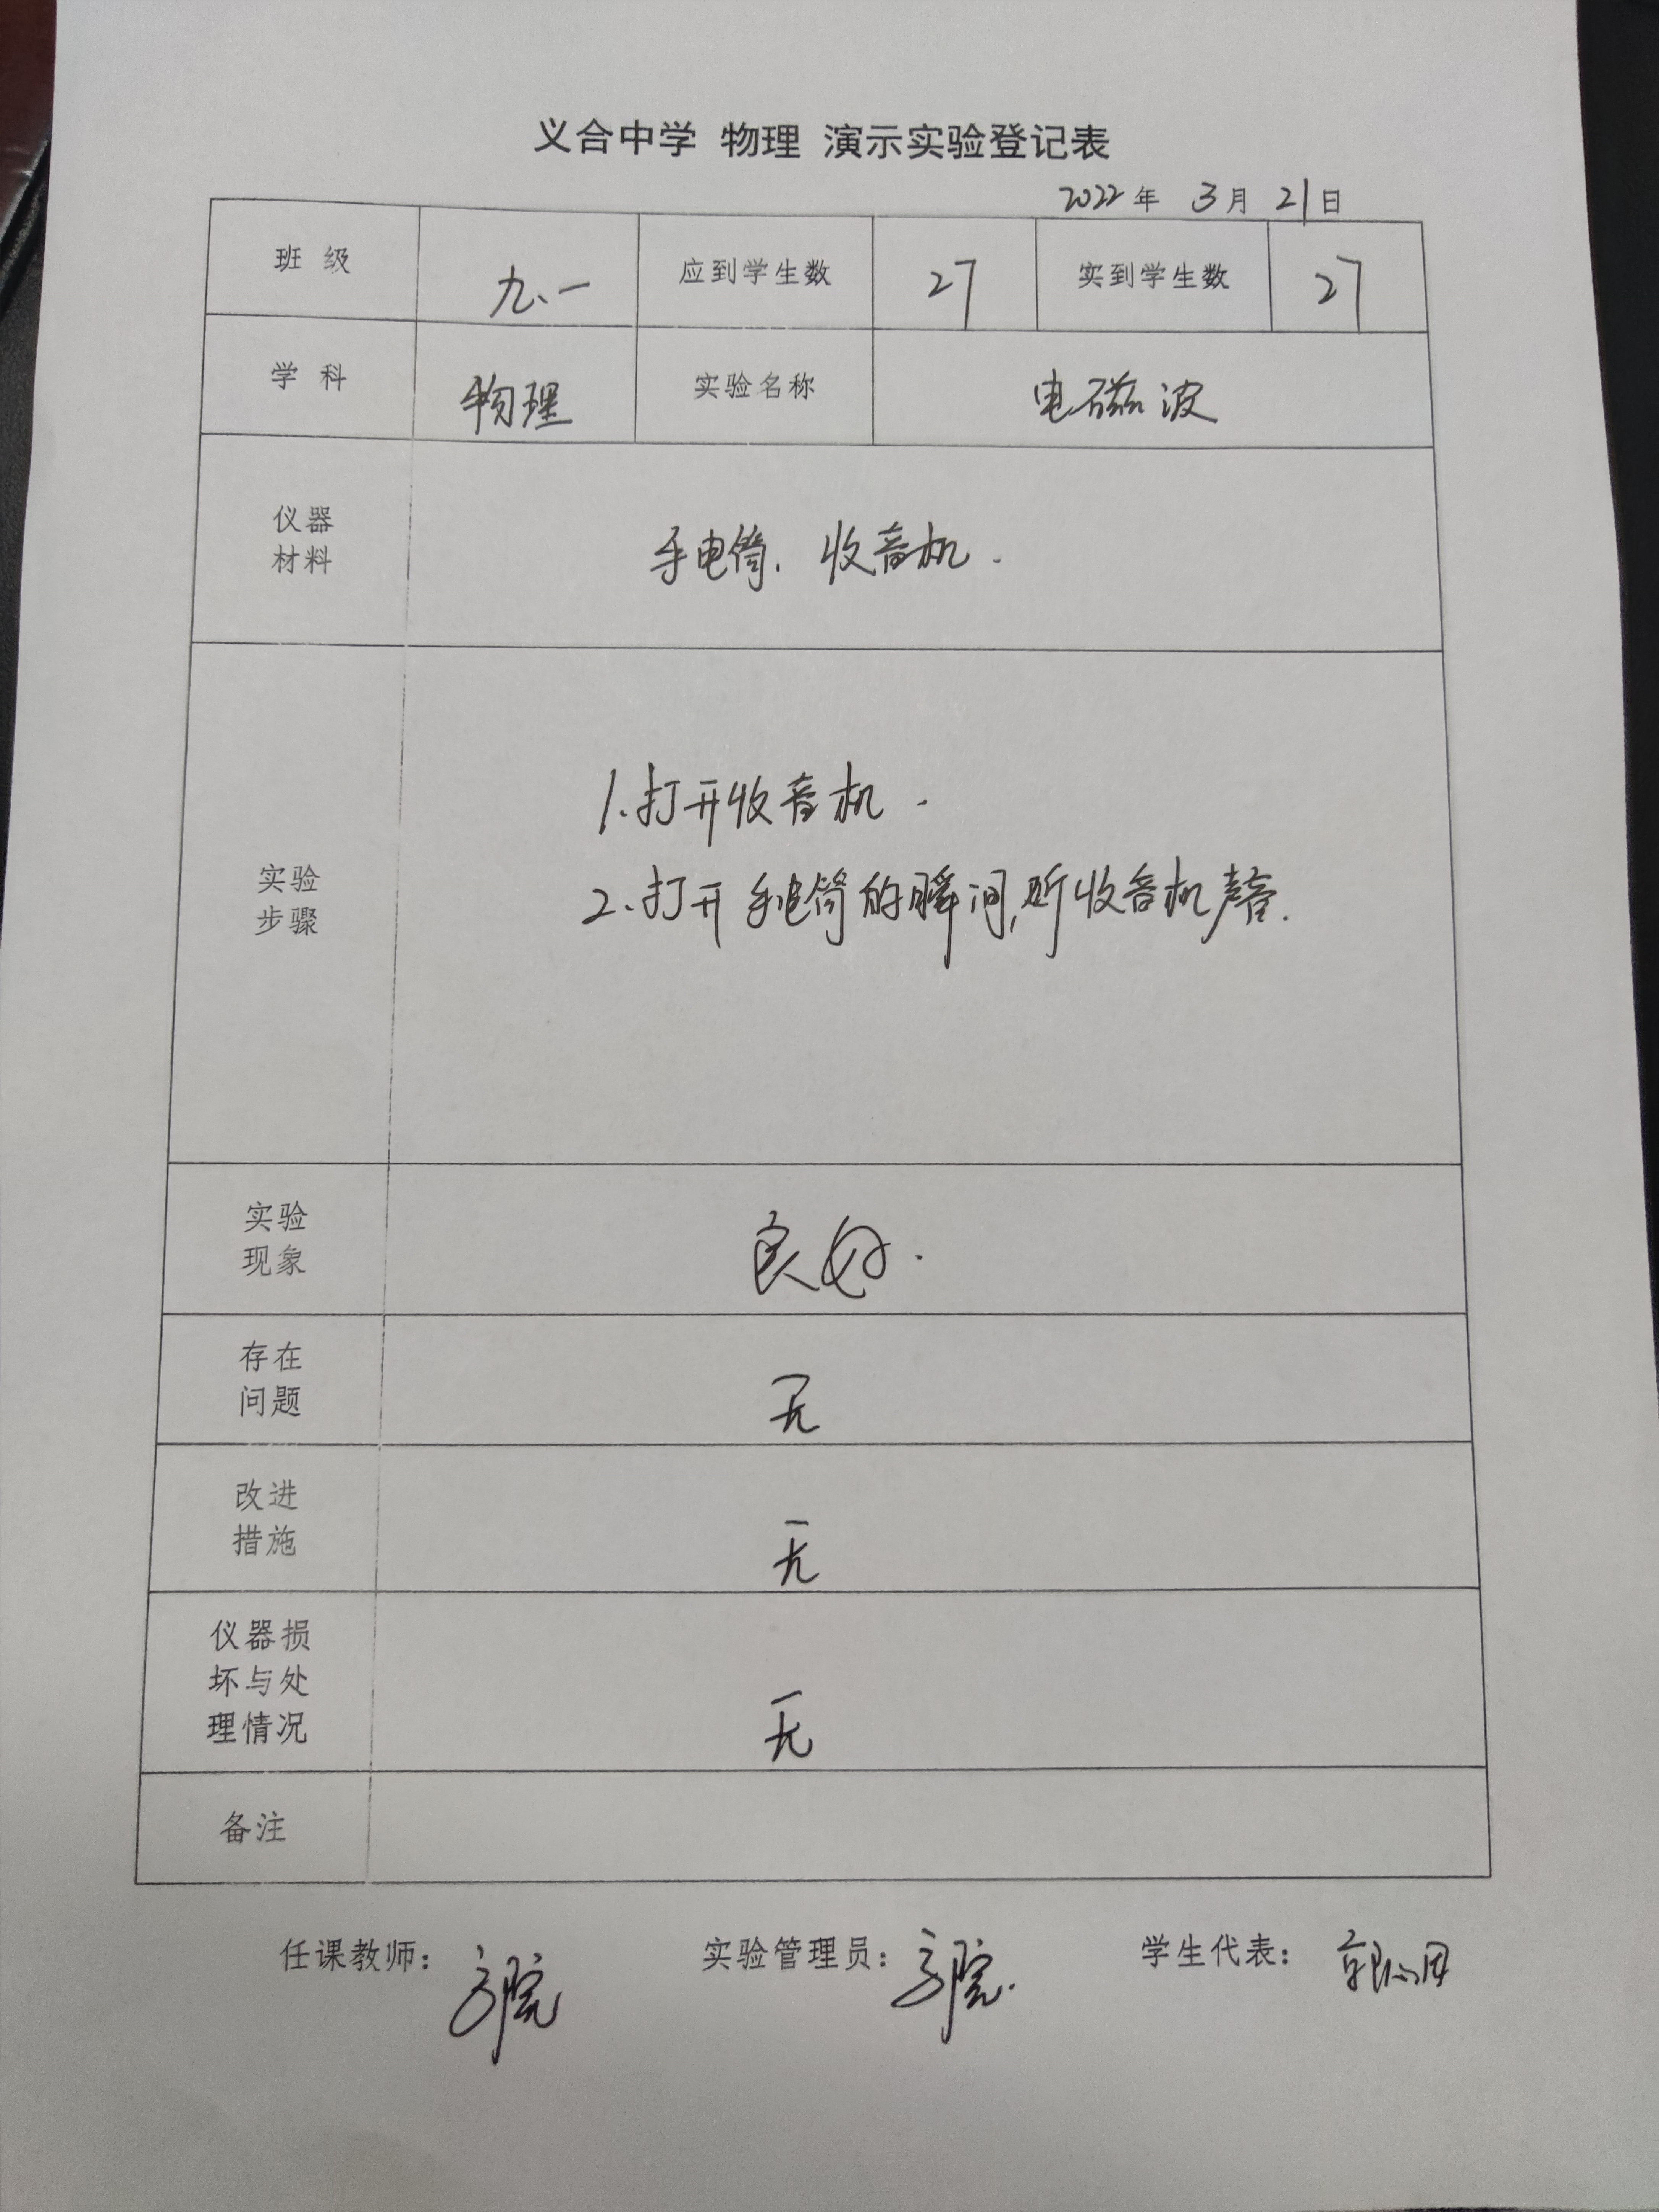 义合中学 物理 演示实验登记表
2022年 3月 21日
班 级 九.一 应到学生数 27 实到学生数 27
学 科 物理 实验名称 电磁波
仪器
材料
手电筒、收音机.
实验
步骤
1.打开收音机.
2.打开手电筒的瞬间,听收音机声音.
实验
现象
良好.
存在
问题
无
改进
措施
无
仪器损
坏与处
理情况
无
备注
任课教师: 实验管理员: 学生代表: